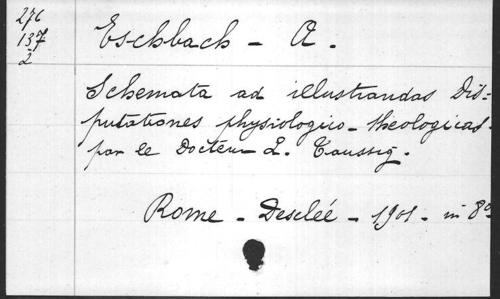 276
137
2
Eschbach - A.
Schemata ad illustrandas Dis=
putationes physiologico-theologicas.
par le Docteur L. Taussig.
Rome - Desclée - 1901 - in 8º